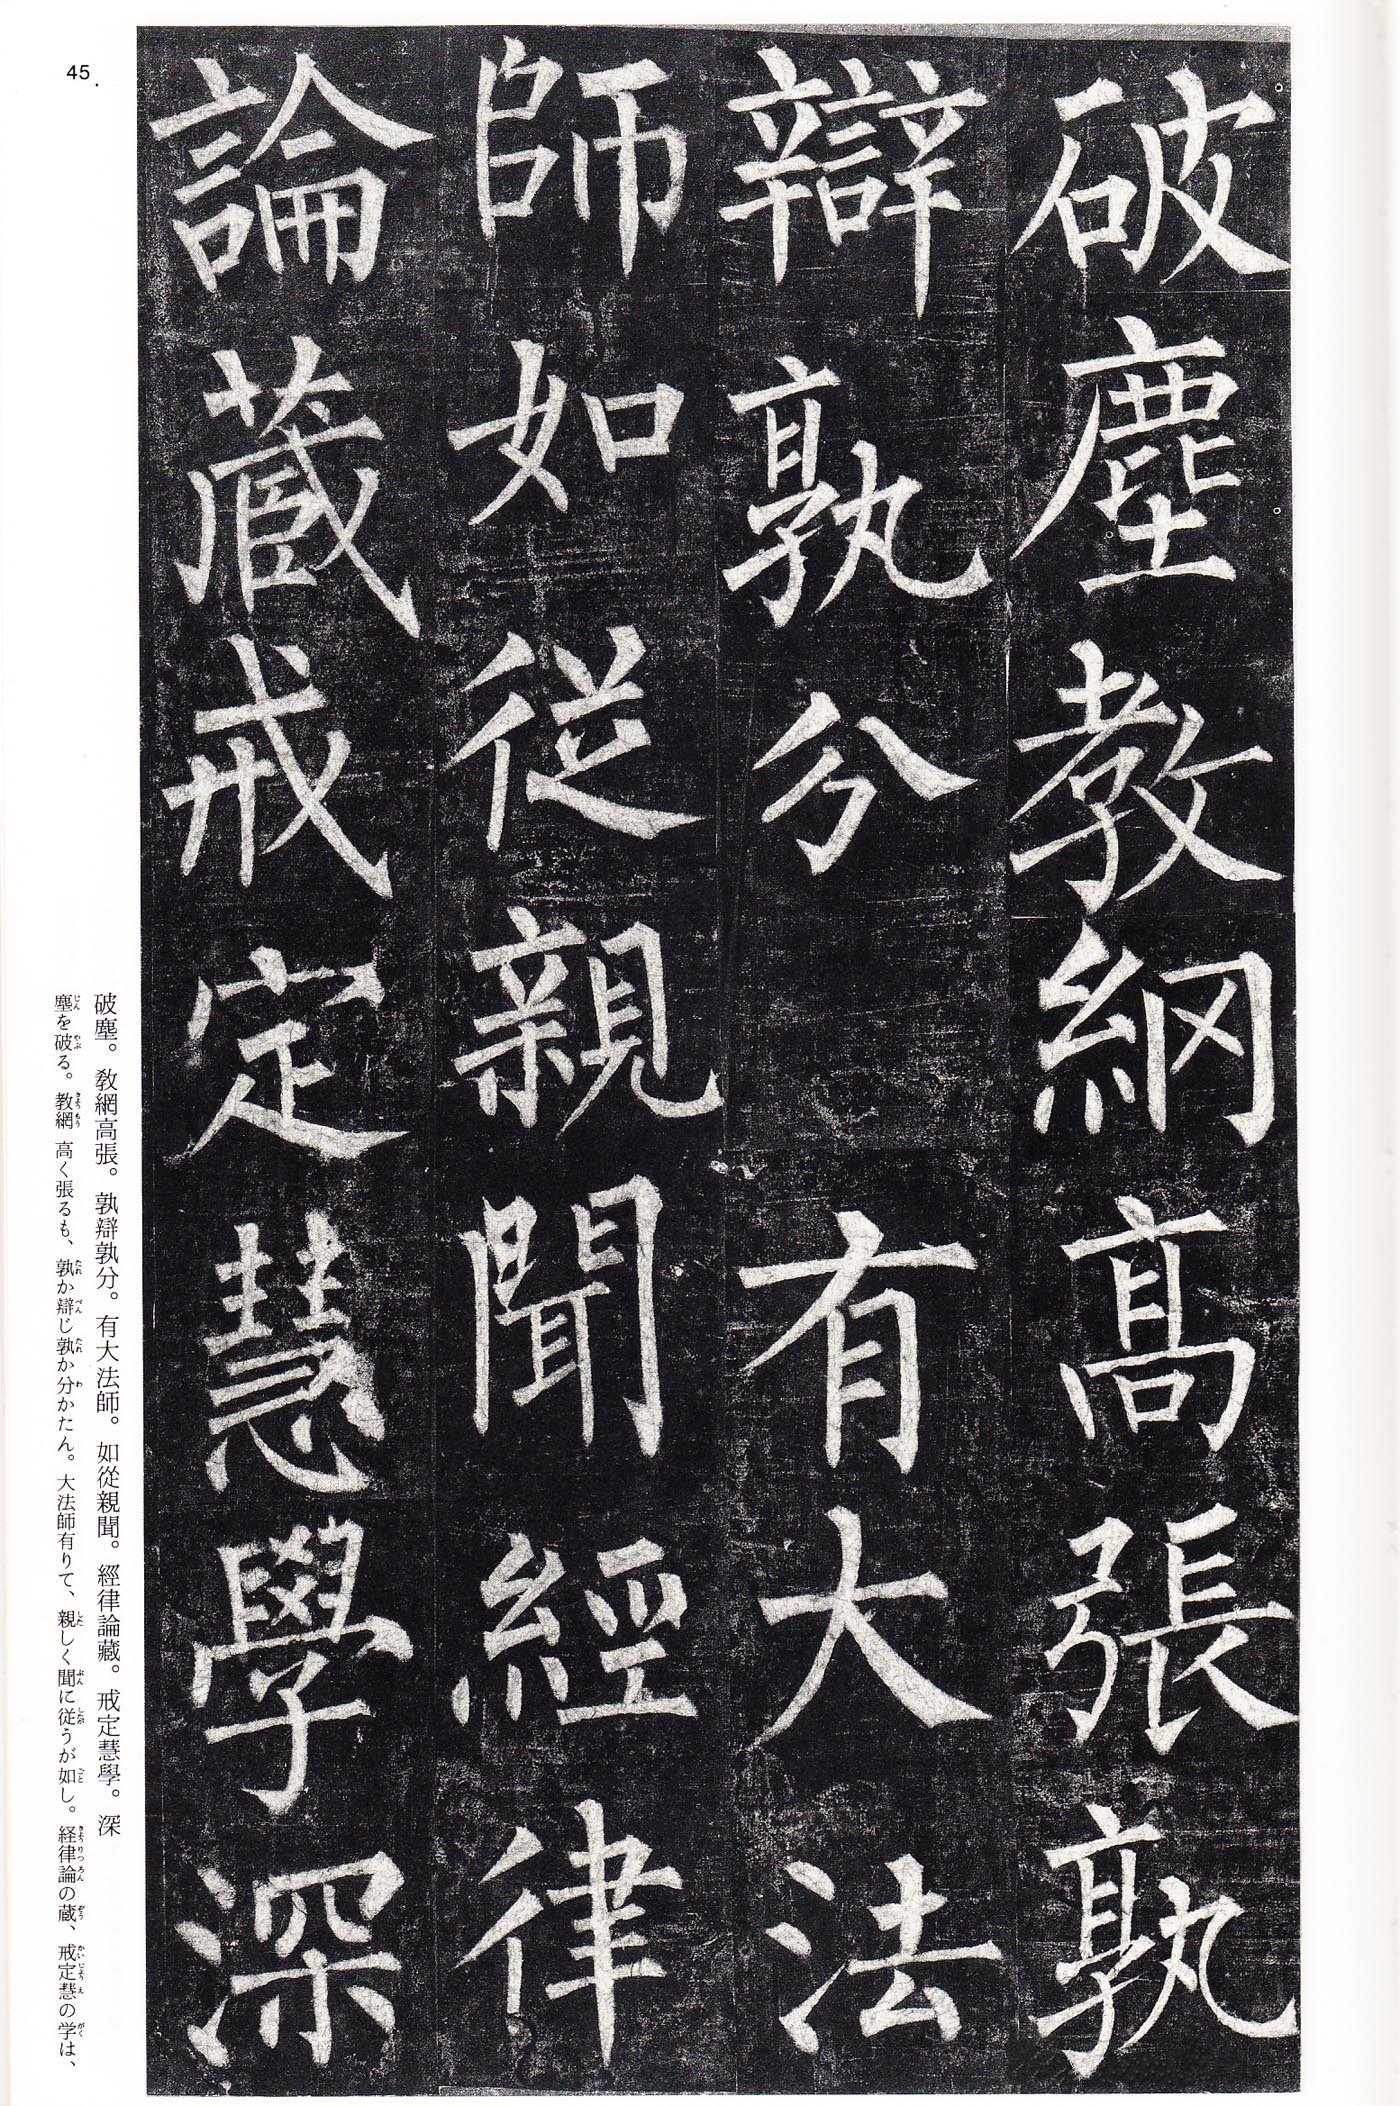 45
破塵教網高張孰
辯孰分有大法
師如從親聞經律
論藏戒定慧學深
破塵。教網高張。孰辯孰分。有大法師。如從親聞。經律論藏。戒定慧學。深
塵を破る。教網高く張るも、孰か辯じ孰か分かたん。大法師有りて、親しく聞に従うが如し。経律論の蔵、戒定慧の学は、